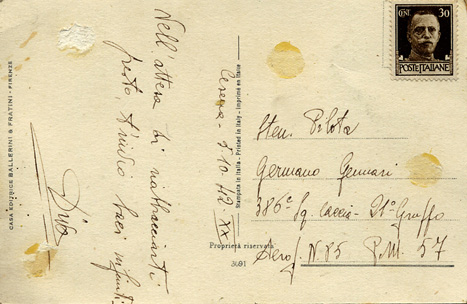 Nell'attesa di riabbracciarti
presto, t'invio baci infiniti
Diva
CASA EDITRICE BALLERINI & FRATINI - FIRENZE
Cesena - 5.10.42.XX
Stampata in Italia - Printed in Italy - Imprimé en Italie
Proprietà riservata
3691
CENT. 30
POSTE ITALIANE
Sten. Pilota
Germano Gennari
386ª Sq. Caccia - 21º Gruppo
Aerop. N. 85 P.M. 57